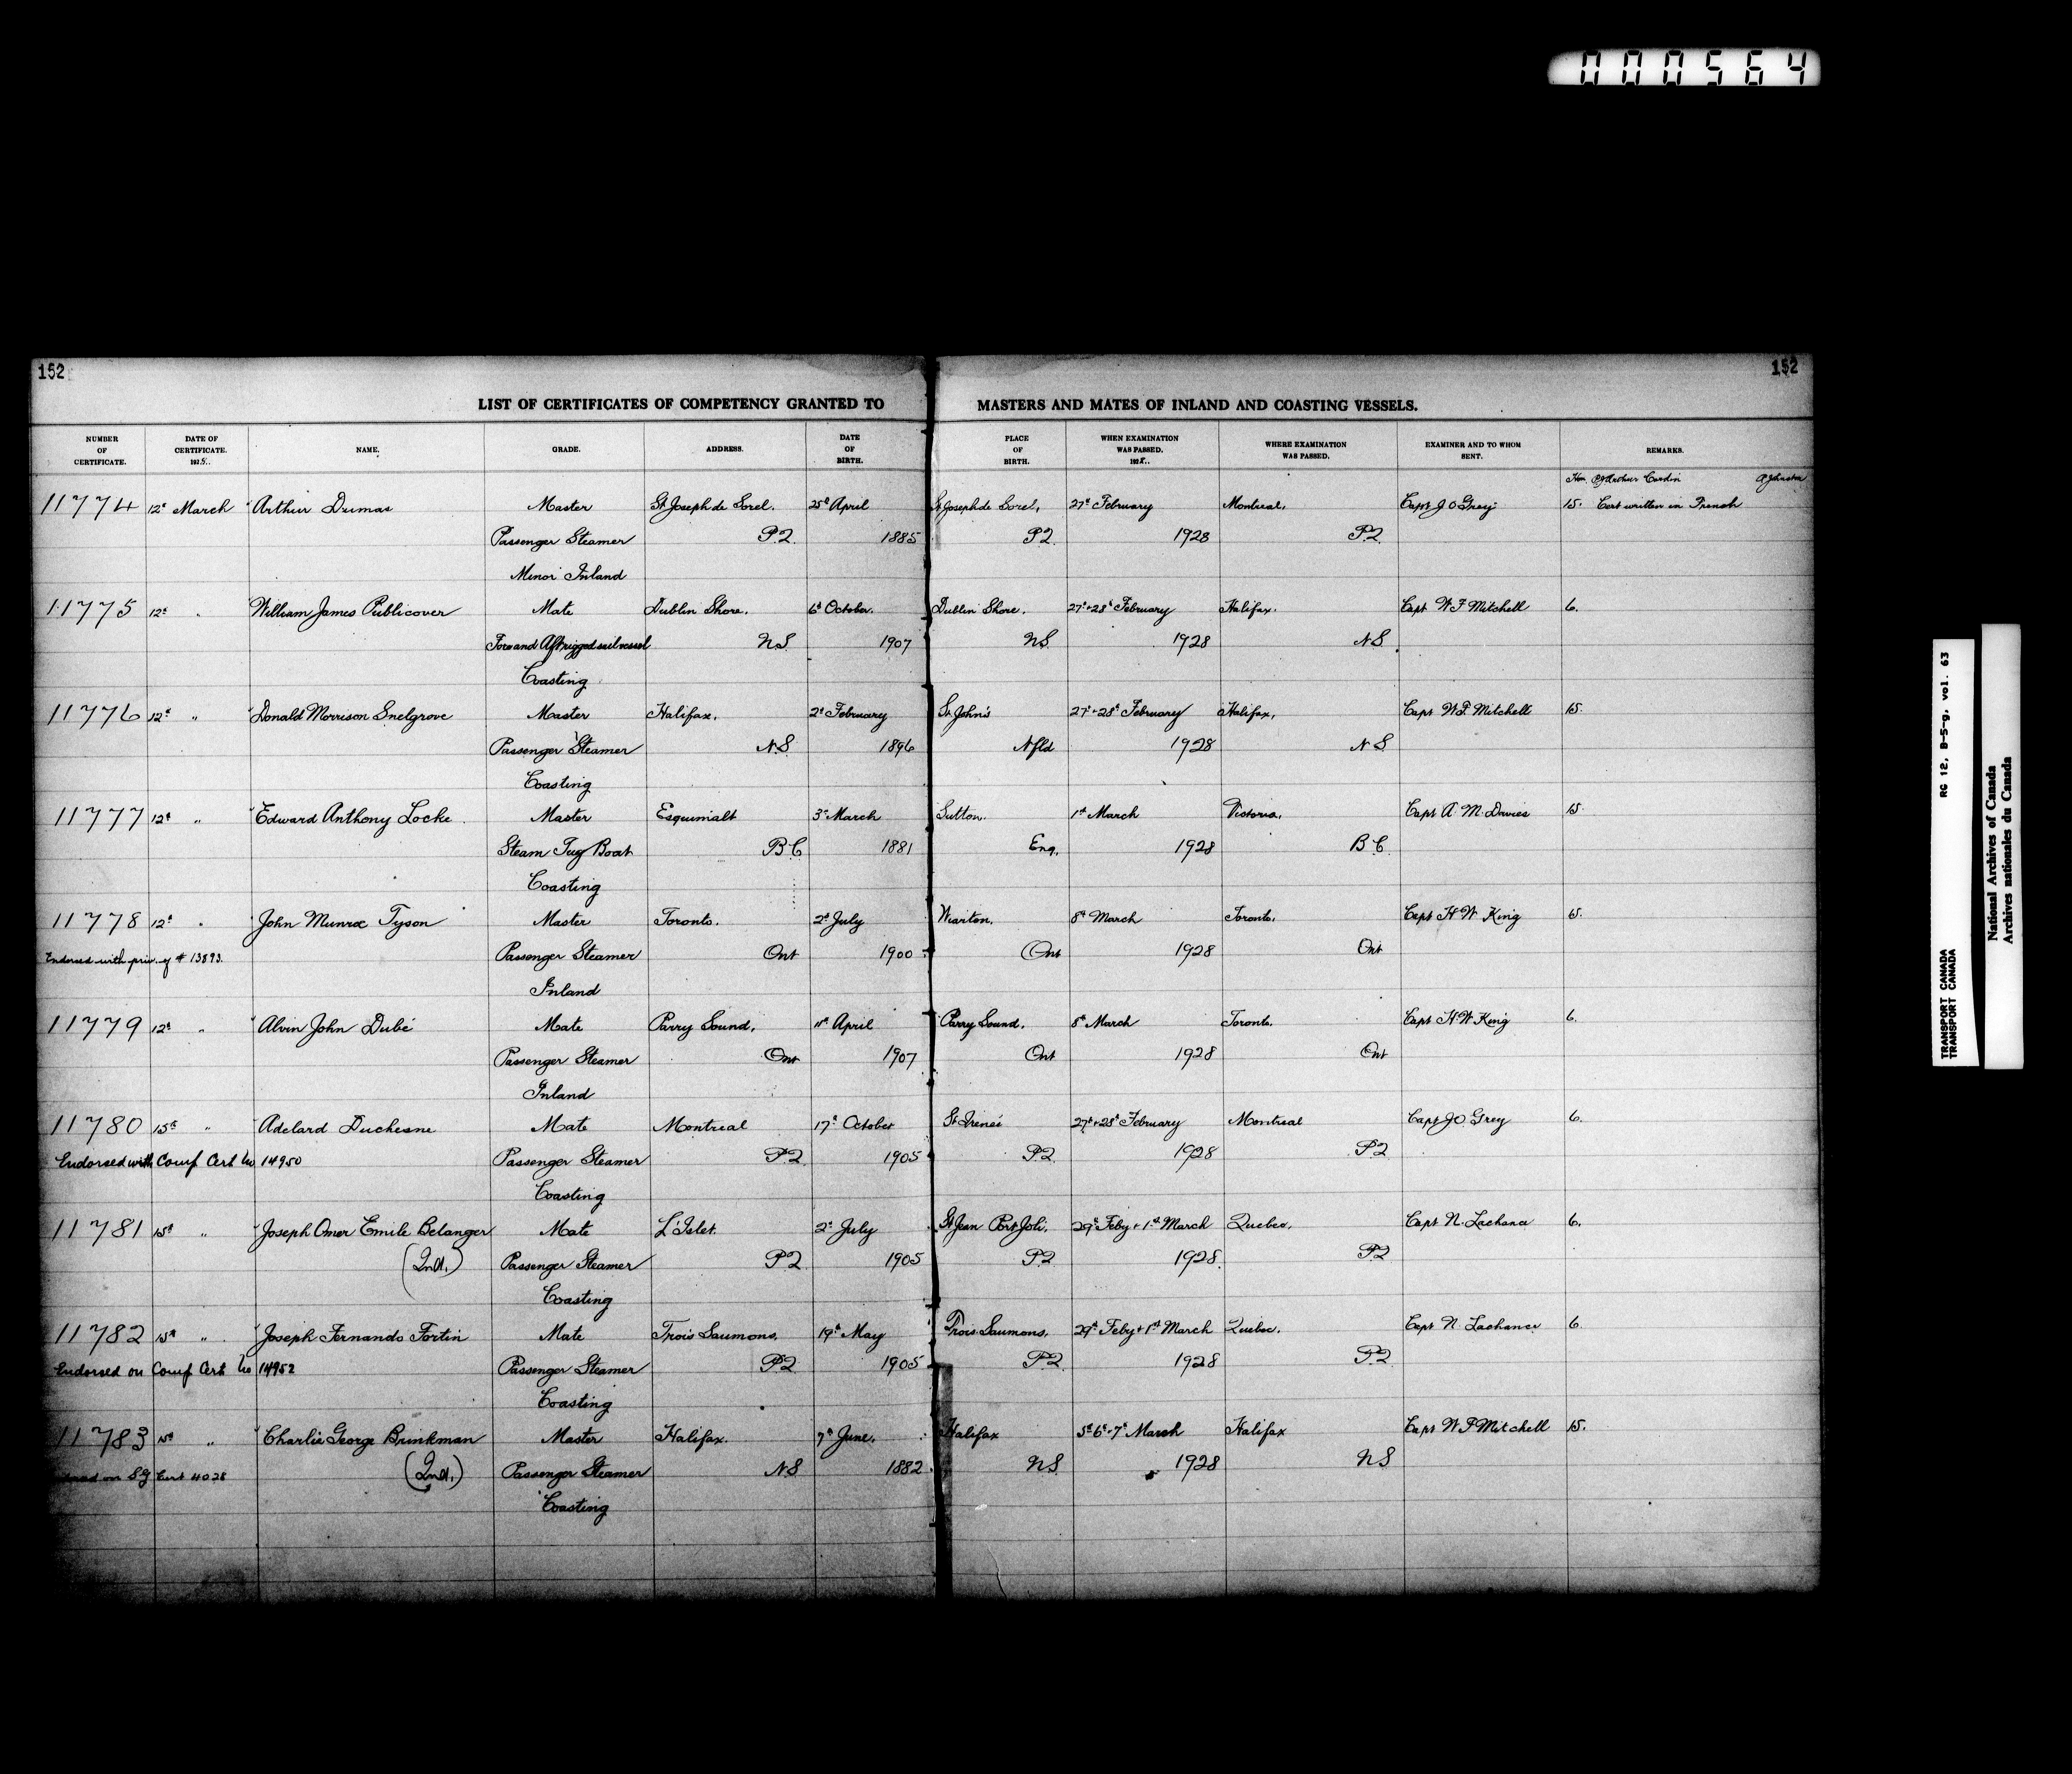 000564
152
152
LIST OF CERTIFICATES OF COMPETENCY GRANTED TO MASTERS AND MATES OF INLAND AND COASTING VESSELS.
NUMBER OF CERTIFICATE. DATE OF CERTIFICATE. 1928. NAME. GRADE. ADDRESS. DATE OF BIRTH. PLACE OF BIRTH. WHEN EXAMINATION WAS PASSED. 1928. WHERE EXAMINATION WAS PASSED. EXAMINER AND TO WHOM SENT. REMARKS.
Hon. P J Arthur Cardin A Johnston
11774 12th March Arthur Dumas Master St Joseph de Sorel. 25th April St Joseph de Sorel, 27th February Montreal, Capt J O Grey 15. Cert written in French
Passenger Steamer P.Q. 1885 P.Q. 1928 P.Q.
Minor Inland
11775 12th " William James Publicover Mate Dublin Shore. 6th October. Dublin Shore. 27th & 28th February Halifax. Capt W F Mitchell 6.
Fore and Aft rigged sail vessel N.S. 1907 N.S. 1928 N.S.
Coasting
11776 12th " Donald Morrison Snelgrove Master Halifax, 2nd February St John's 27th & 28th February Halifax, Capt W F Mitchell 15.
Passenger Steamer N.S. 1896 Nfld 1928 N.S.
Coasting
11777 12th " Edward Anthony Locke Master Esquimalt 3rd March Sutton. 1st March Victoria, Capt A. M. Davies 15
Steam Tug Boat B.C. 1881 Eng. 1928 B.C.
Coasting
11778 12th " John Munroe Tyson Master Toronto. 2nd July Wiarton. 8th March Toronto, Capt H W King 15.
Endorsed with priv. of # 13893. Passenger Steamer Ont 1900 Ont 1928 Ont
Inland
11779 12th " Alvin John Dubé Mate Parry Sound, 11th April Parry Sound. 8th March Toronto. Capt H W King 6.
Passenger Steamer Ont 1907 Ont 1928 Ont
Inland
11780 15th " Adelard Duchesne Mate Montreal 17th October St Irenée 27th & 28th February Montreal Capt J O Grey 6.
Endorsed with Comp Cert No 14950 Passenger Steamer P.Q. 1905 P.Q. 1928 P.Q.
Coasting
11781 15th " Joseph Omer Emile Belanger Mate L'Islet. 2nd July St Jean Port Joli, 29th Feby & 1st March Quebec, Capt N. Lachance 6.
(Ind.) Passenger Steamer P.Q. 1905 P.Q. 1928. P.Q.
Coasting
11782 15th " Joseph Fernando Fortin Mate Trois Saumons, 19th May Trois Saumons. 29th Feby & 1st March Quebec. Capt N. Lachance 6
Endorsed on Comp Cert No 14952 Passenger Steamer P.Q. 1905 P.Q. 1928 P.Q.
Coasting
11783 15th " Charlie George Brinkman Master Halifax. 7th June. Halifax 5th 6th & 7th March Halifax Capt W F Mitchell 15.
on S.G Cert 4028 (Ind.) Passenger Steamer N.S 1882 N.S. 1928 N.S
Coasting
TRANSPORT CANADA RG 12, B-5-g, vol. 63
TRANSPORT CANADA
National Archives of Canada
Archives nationales du Canada